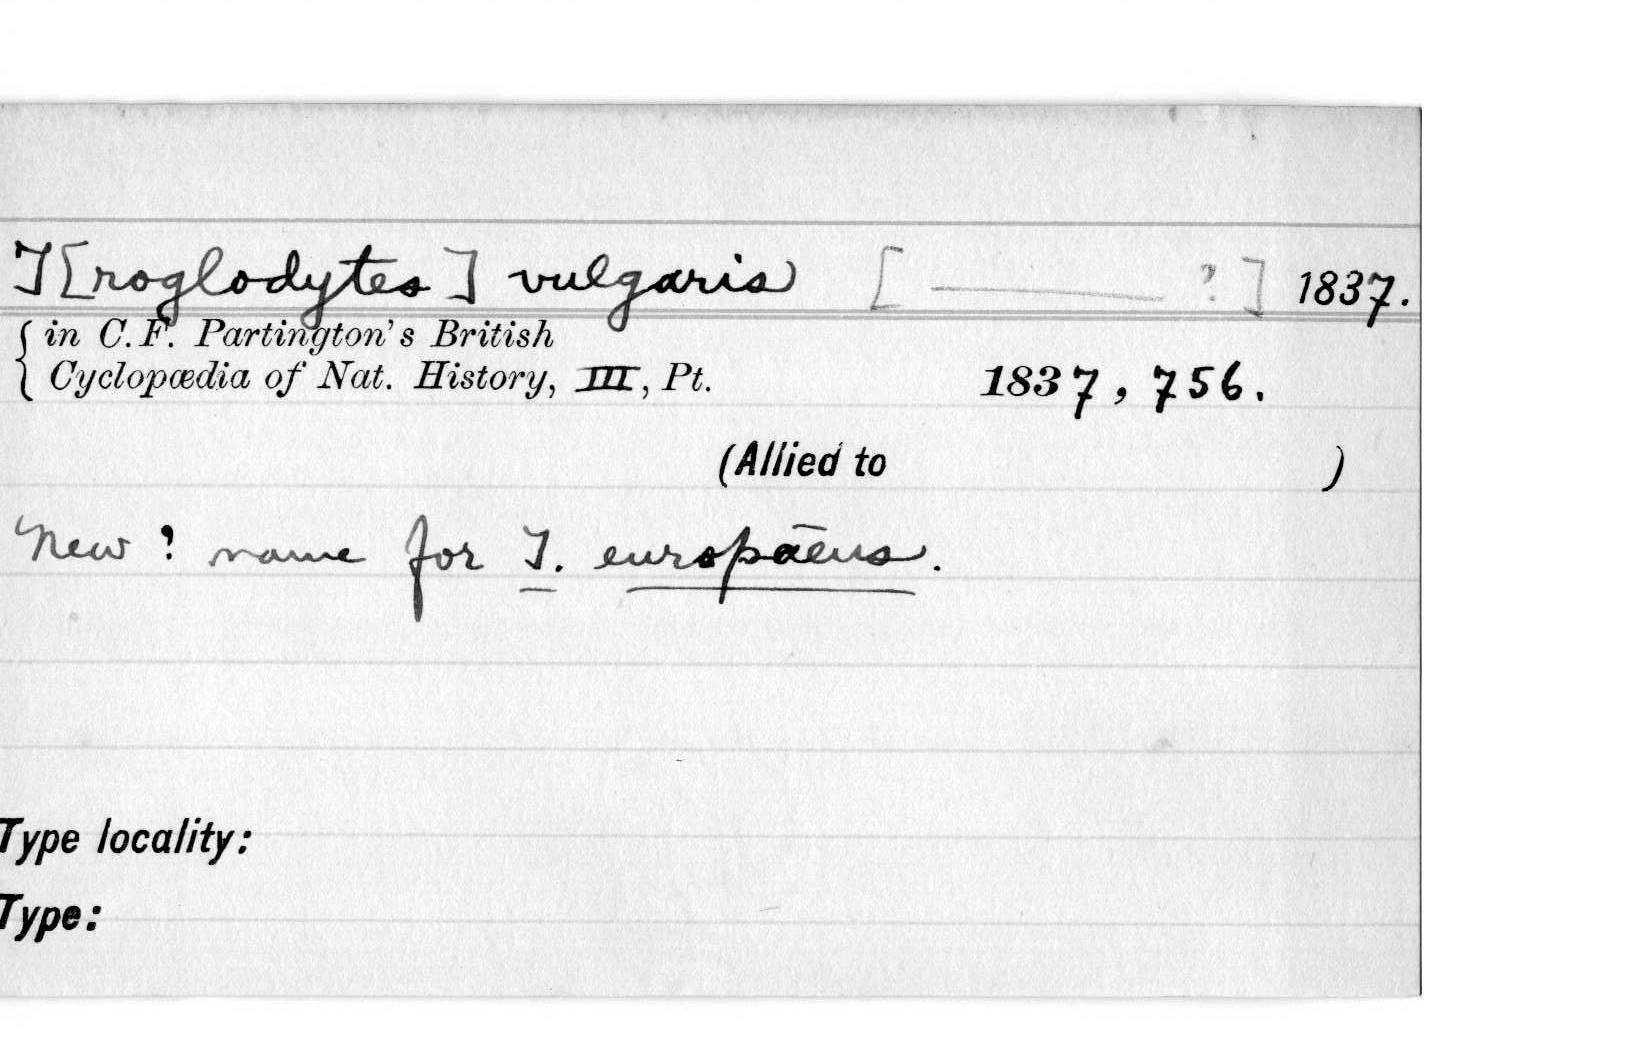 T[roglodytes] vulgaris [——— ?] 1837.
{ in C.F. Partington's British
Cyclopædia of Nat. History, III, Pt. 1837, 756.
(Allied to )
New ? name for T. europāeus.
Type locality:
Type: